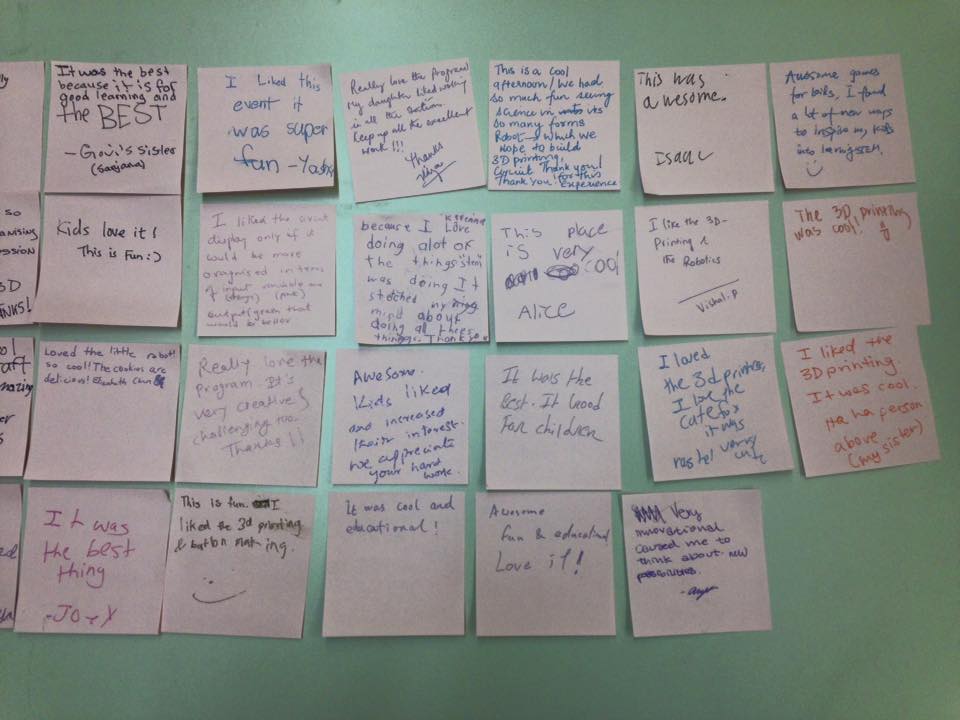 It was the best
because it is for
good learning and
the BEST
- Govi's sister
(Sanjana)
I Liked this
event it
was super
fun - Yash
Really love the program
my daughter liked
in all the
keep up all the excellent
work !!!
Thanks
This is a cool
afternoon! We had
so much fun seeing
science in its
so many forms
Robot → which we
hope to build
3D printing,
Circuit Thank you!
Thank you! for this
experience
This was
awesome.
Isaac
Awesome games
for kids, I found
a lot of new ways
to inspire my kids
into learning STEM.
so
ANISING
SSION
3D
ANKS!
Kids love it!
This is Fun :)
I liked the circuit
display only if it
would be more
oragnised in terms
of input variable and
output (gram that
would be better
because I Love
doing alot of
the things
was doing It
stetched my
mind about
doing all thees
things. Thank you
This place
is very
cool
Alice
I like the 3D-
Printing &
the Robotics
Vishal.P
The 3D printing
was cool!
Loved the little robot!
so cool! The cookies are
delicious! Elizabeth
Really love the
program. It's
very creative &
challenging too.
Thanks !!
Awesome.
Kids liked
and increased
their interest.
we appreciate
your hard
work.
It was the
Best. It Good
For children
I loved
the 3d printer,
I like the
it was
very
I liked the
3D printing.
It was cool.
Ha ha person
above
(my sister)
It was
the best
thing
This is fun. I
liked the 3d printing
& button making.
It was cool and
educational!
Awesome
fun & educational
Love it!
Very
innovational
caused me to
think about new
possibilities.